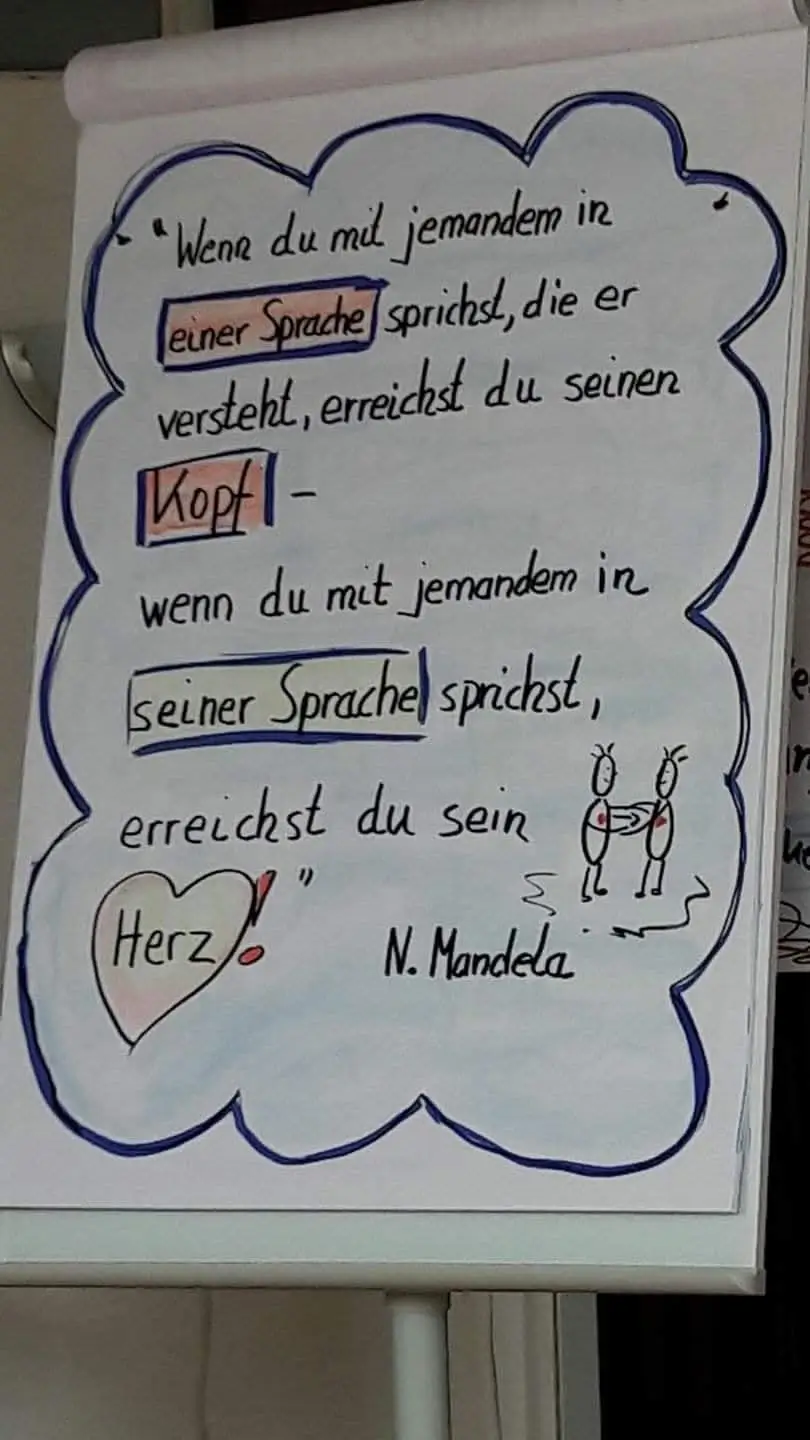 "Wenn du mit jemandem in
einer Sprache sprichst, die er
versteht, erreichst du seinen
Kopf -
wenn du mit jemandem in
seiner Sprache sprichst,
erreichst du sein
Herz!"
N. Mandela